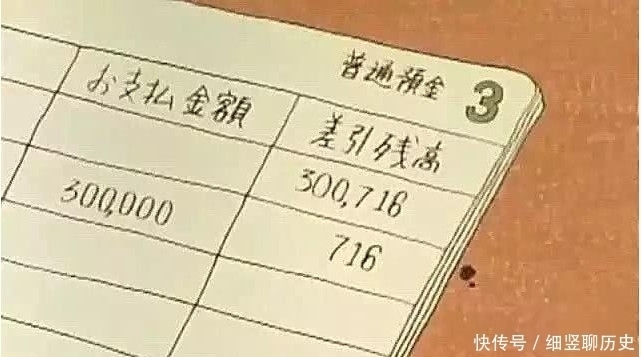 普通預金 3
お支払金額 差引残高
300,716
300,000 716
快传号 / 细竖聊历史